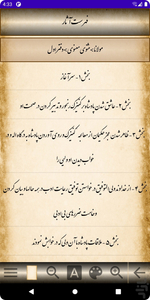 4:33
فهرست آثار
مولانا، مثنوی معنوی، دفتر اول
بخش ۱- سرآغاز
بخش ۲- عاشق شدن پادشاه بر کنیزک رنجور و تدبیر کردن در صحت او
بخش ۳- ظاهر شدن عجز حکیمان از معالجهٔ کنیزک و روی آوردن پادشاه به درگاه اله و در
خواب دیدن او ولیی را
بخش ۴- از خداوند ولی‌التوفیق در خواستن توفیق رعایت ادب در همه حالها و بیان کردن
وخامت ضررهای بی‌ادبی
بخش ۵- ملاقات پادشاه با آن ولی که در خوابش نمودند
A